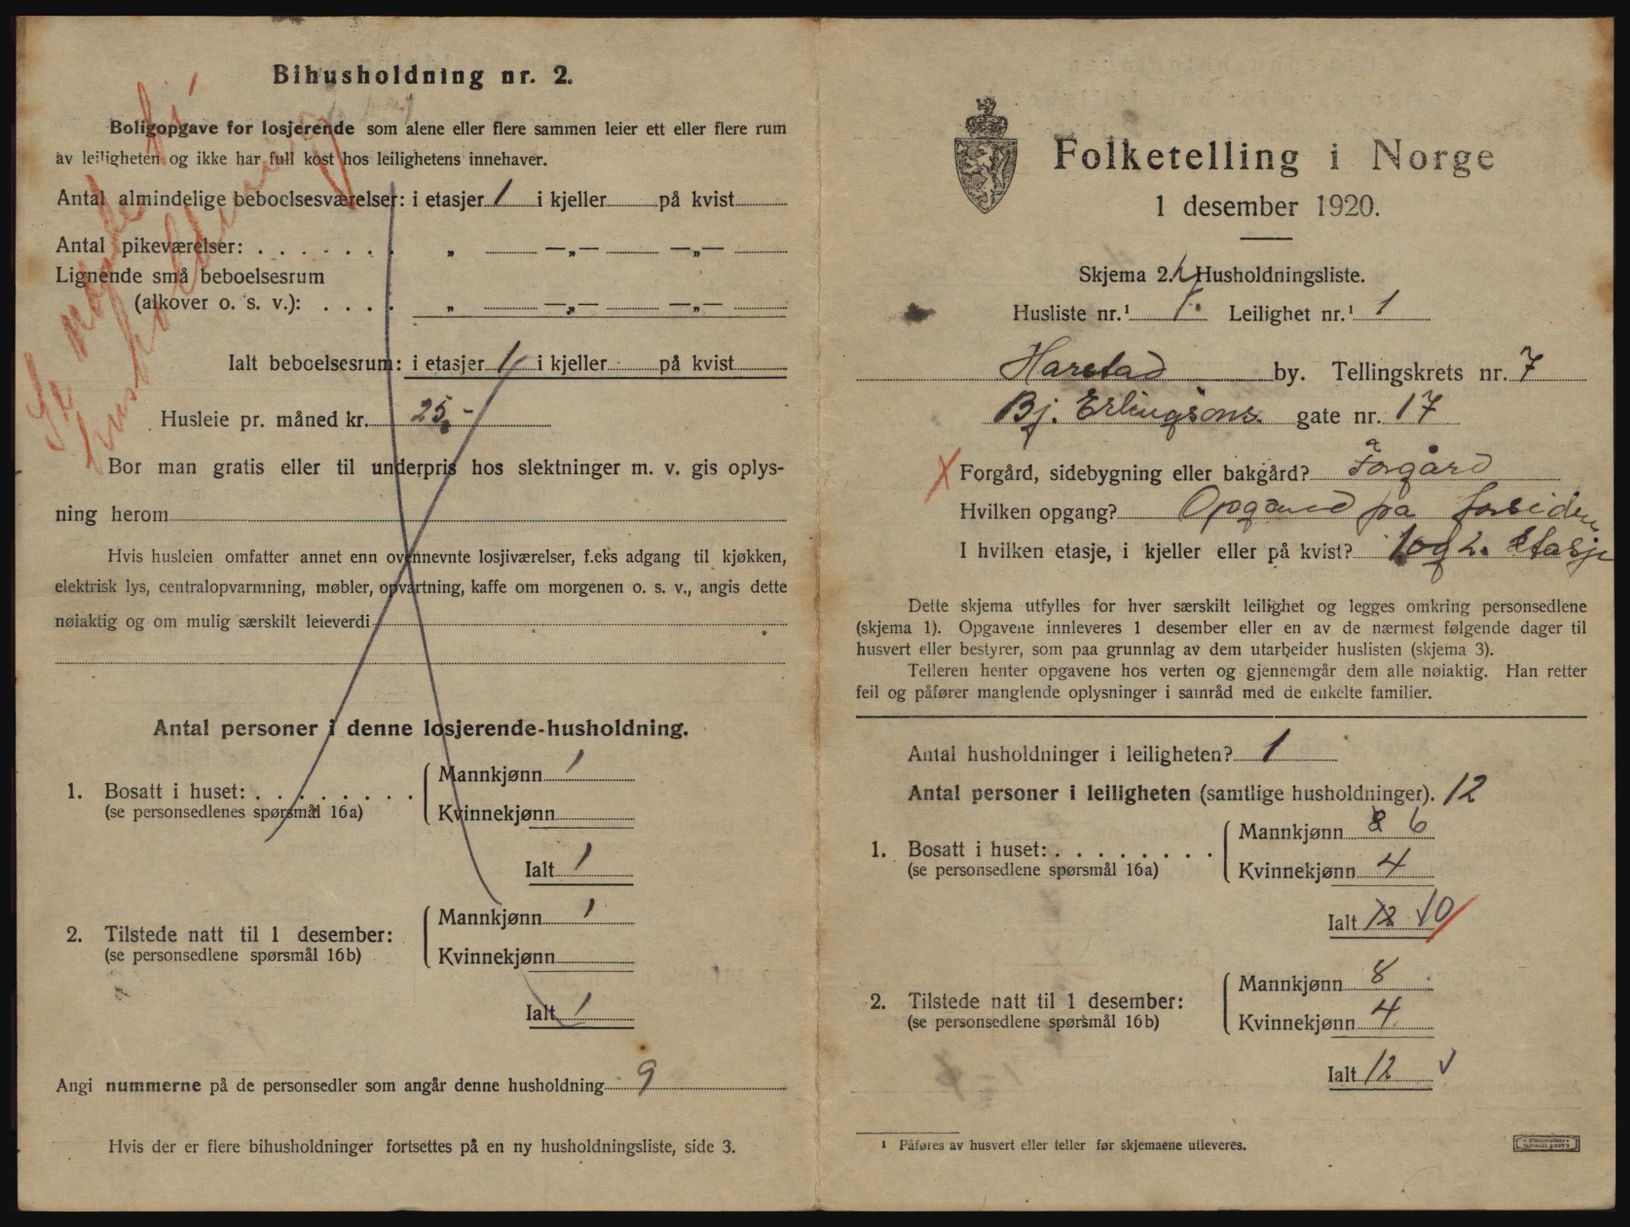 Bihusholdning nr. 2.
Boligopgave for losjerende som alene eller flere sammen leier ett eller flere rum
av leiligheten og ikke har full kost hos leilighetens innehaver.
Antal almindelige beboelsesværelser: i etasjer 1 i kjeller på kvist
Antal pikeværelser: . . . . . . . „ —„— —„—
Lignende små beboelsesrum
(alkover o. s. v.): . . . . „ —„— —„—
Ialt beboelsesrum: i etasjer 1 i kjeller på kvist
Husleie pr. måned kr. 25,-
Bor man gratis eller til underpris hos slektninger m. v. gis oplys-
ning herom
Hvis husleien omfatter annet enn ovennevnte losjiværelser, f.eks adgang til kjøkken,
elektrisk lys, centralopvarmning, møbler, opvartning, kaffe om morgenen o. s. v., angis dette
nøiaktig og om mulig særskilt leieverdi
Antal personer i denne losjerende-husholdning.
1. Bosatt i huset: . . . . . . . .
(se personsedlenes spørsmål 16a)
Mannkjønn 1
Kvinnekjønn
Ialt 1
2. Tilstede natt til 1 desember:
(se personsedlene spørsmål 16b)
Mannkjønn 1
Kvinnekjønn
Ialt 1
Angi nummerne på de personsedler som angår denne husholdning 9
Hvis der er flere bihusholdninger fortsettes på en ny husholdningsliste, side 3.
Folketelling i Norge
1 desember 1920.
Skjema 2. Husholdningsliste.
Husliste nr.¹ 1. Leilighet nr.¹ 1
Harstad by. Tellingskrets nr. 7
Bj. Erlingsøns gate nr. 17
Forgård, sidebygning eller bakgård? Forgård
Hvilken opgang? Opgand på forsiden
I hvilken etasje, i kjeller eller på kvist? 1 og 2. Etasje
Dette skjema utfylles for hver særskilt leilighet og legges omkring personsedlene
(skjema 1). Opgavene innleveres 1 desember eller en av de nærmest følgende dager til
husvert eller bestyrer, som paa grunnlag av dem utarbeider huslisten (skjema 3).
Telleren henter opgavene hos verten og gjennemgår dem alle nøiaktig. Han retter
feil og påfører manglende oplysninger i samråd med de enkelte familier.
Antal husholdninger i leiligheten? 1
Antal personer i leiligheten (samtlige husholdninger). 12
1. Bosatt i huset: . . . . . . . .
(se personsedlene spørsmål 16a)
Mannkjønn 8 6
Kvinnekjønn 4
Ialt 12 10
2. Tilstede natt til 1 desember:
(se personsedlene spørsmål 16b)
Mannkjønn 8
Kvinnekjønn 4
Ialt 12
¹ Påføres av husvert eller teller før skjemaene utleveres.